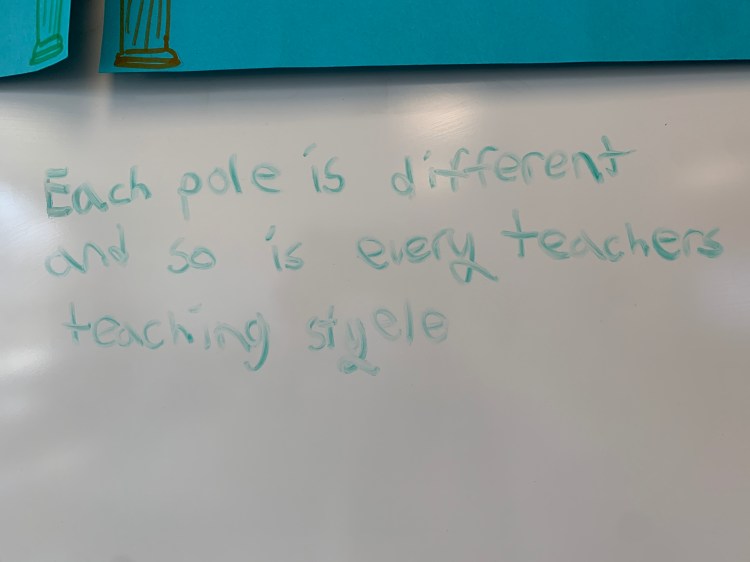 Each pole is different
and so is every teachers
teaching styele